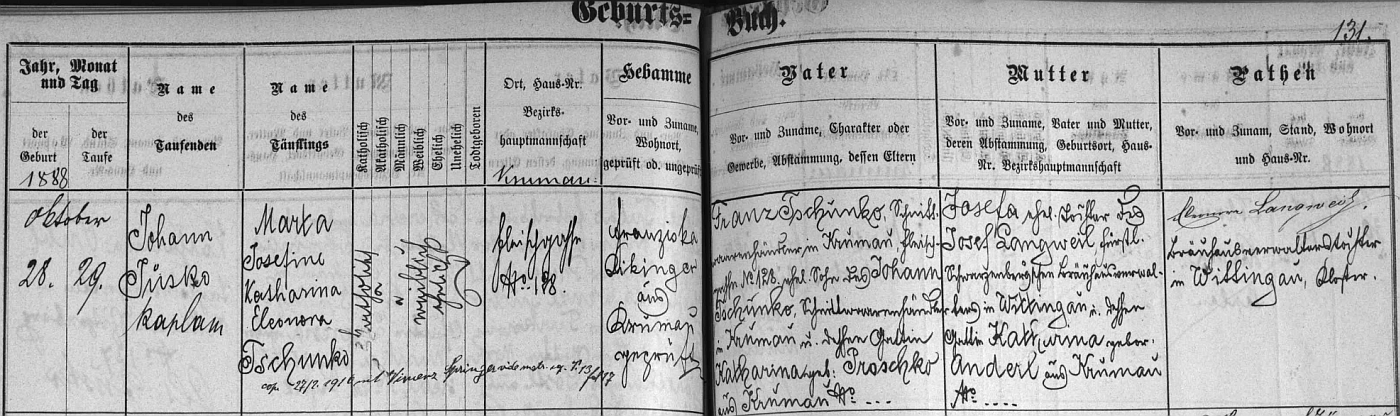 Geburts= Buch.
131.
Jahr, Monat
und Tag
der
Geburt
1888
der
Taufe
Name
des
Taufenden
Name
des
Täuflings
Katholisch
Akatholisch
Männlich
Weiblich
Ehelich
Unehelich
Todtgeboren
Ort, Haus-Nr.
Bezirks-
hauptmannschaft
Krumau.
Hebamme
Vor- und Zuname,
Wohnort,
geprüft od. ungeprüft
Vater
Vor- und Zuname, Charakter oder
Gewerbe, Abstammung, dessen Eltern
Mutter
Vor- und Zuname, Vater und Mutter,
deren Abstammung, Geburtsort, Haus-
Nr. Bezirkshauptmannschaft
Pathen
Vor- und Zunam, Stand, Wohnort
und Haus-Nr.
Oktober
28. 29.
Johann
Jusko
Kaplan
Maria
Josefine
Katharina
Eleonora
Tschunko
katholisch
weiblich
ehelich
Fleischgasse
No 128.
Franziska
aus
Krumau
geprüft
Franz Tschunko, Schnitt-
warenhändler in Krumau, Fleisch-
gasse No 128. ehel. Sohn des Johann
Tschunko, Schnittwarenhändlers
in Krumau u. dessen Gattin
Katharina geb. Proschko
aus Krumau No ....
Josefa ehel. Tochter des
Josef Langweil fürstl.
Schwarzenbergschen Bräuhausverwal-
ters in Wittingau u. dessen
Gattin Katharina gebor.
Anderl aus Krumau
No ....
Langweil,
Bräuhausverwalterstochter
in Wittingau, Kloster.
cop. 1916 mit